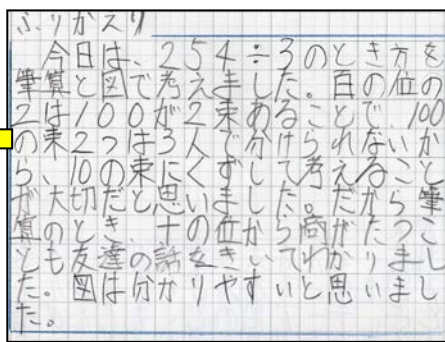 ふりかえり
今日は、254÷3のとき方を
筆算と図で考えました。百の位の
2は100が2束あることで、100
の束2つは3人で分けられないか
ら、10の束にくずして考えること
が大切だと思いました。だから筆
算のとき、十の位から商がたつこ
とも友達の話をきいてわかりまし
た。図は分かりやすいと思いまし
た。